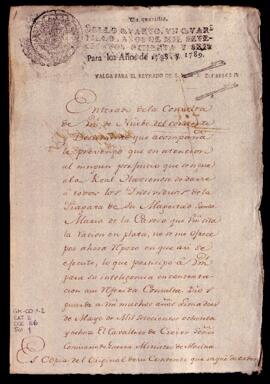 Un quartillo
SELLO QUARTO, UN QUAR-
TILLO, AÑOS DE MIL SETE-
CIENTOS OCHENTA Y SEIS
Para los Años de 1788, y 1789.
VALGA PARA EL REYNADO DE S. M. D. CARLOS IV
Enterado de la Consulta
de Vm de Nuebe del corriente
que acompaña
le prevengo que en atencion
al ningun perjuicio que
la Real Hacienda
a todos los Individuos de la
Fragata de Su Magestad Santa
Maria de la Cabeza que
la racion en plata, no se me ofrece
por ahora reparo en que asi se
efectue, lo que participo à Vm
para su inteligencia en contexta-
cion à su referida Consulta. Dios
guarde à Vm muchos años Lima dos
de Mayo de Mil Setecientos ochenta
y ocho. El Cavallero de Croix Señor
Comisario de Guerra Ministro de Marina
Es Copia del Original